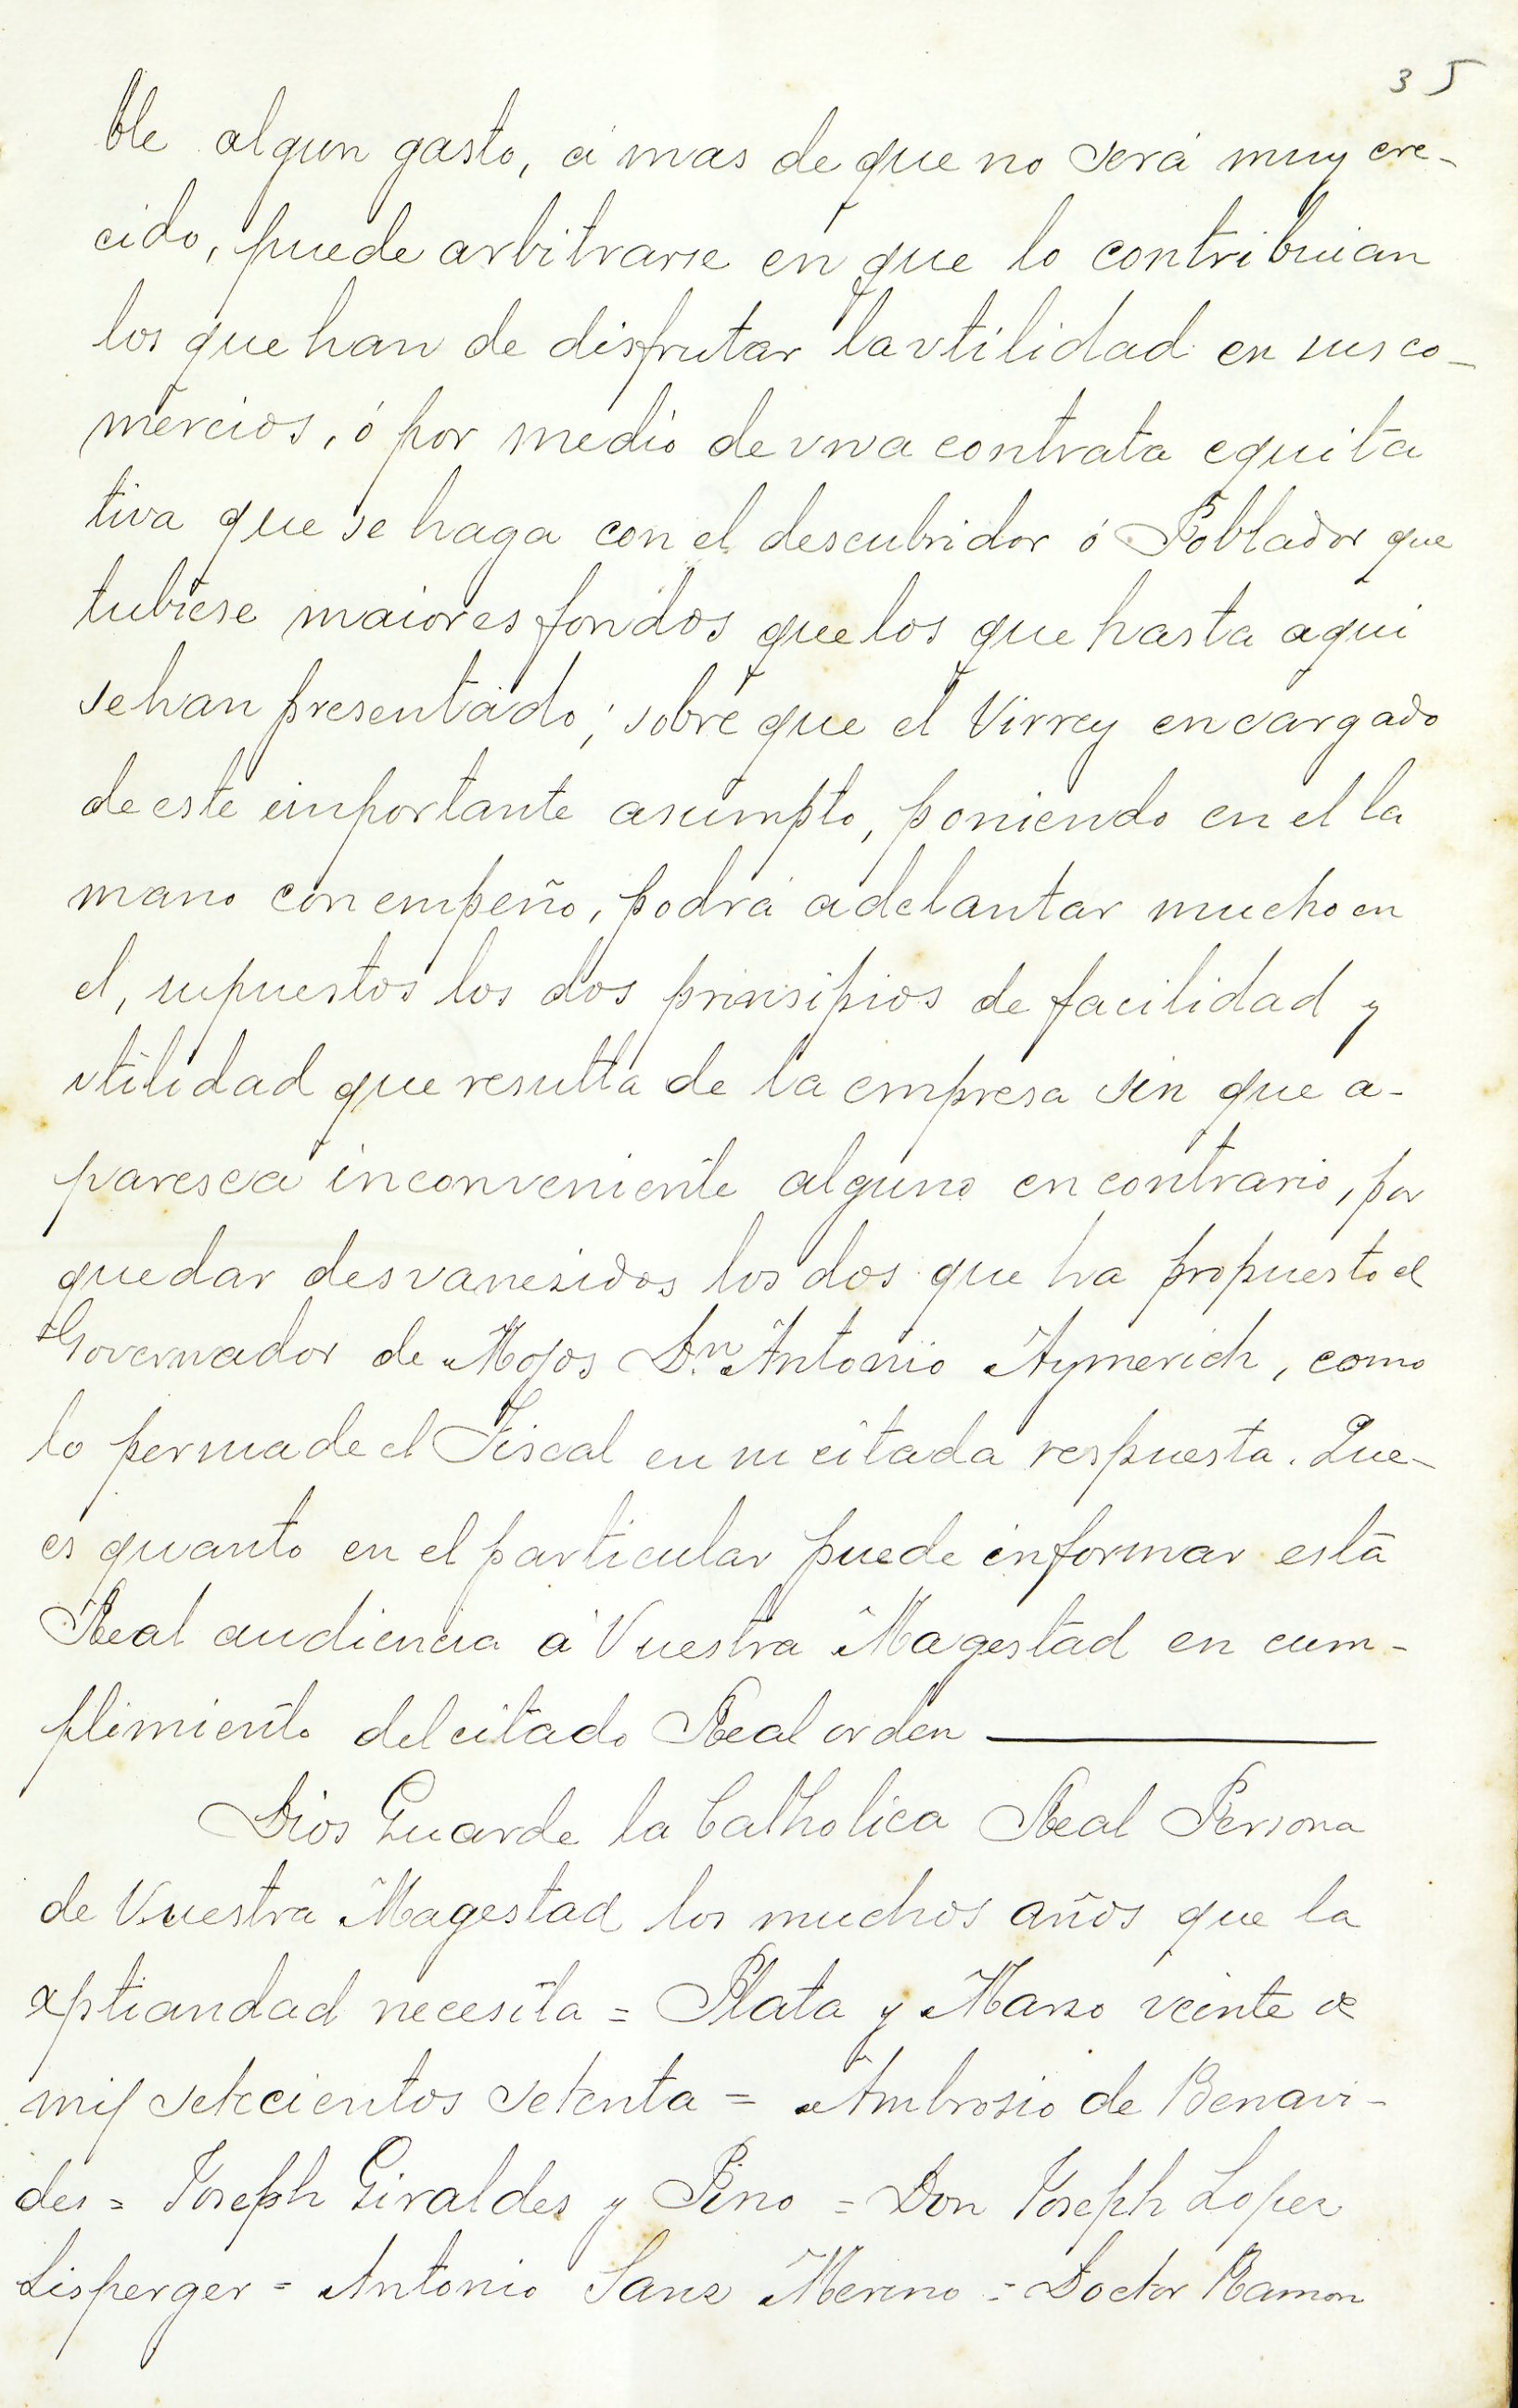 35
ble algun gasto, á mas de que no será muy cre-
cido, puede arbitrarse en que lo contribuian
los que han de disfrutar la vtilidad en sus co-
mercios, ó por medio de vna contrata equita
tiva que se haga con el descubridor ó Poblador que
tubiese maiores fondos que los que hasta aqui
se han presentado; sobre que el Virrey encargado
de este importante asumpto, poniendo en el la
mano con empeño, podrá adelantar mucho en
el, supuestos los dos prinsipios de facilidad y
vtilidad que resulta de la empresa sin que a-
paresca inconveniente alguno en contrario, por
quedar desvanesidos los dos que ha propuesto el
Governador de Mojos Dn. Antonio Aymerich, como
lo persuade el Fiscal en su citada respuesta. Que-
es quanto en el particular puede informar esta
Real audiencia á Vuestra Magestad en cum-
plimiento del citado Real orden
Dios Guarde la Catholica Real Persona
de Vuestra Magestad los muchos años que la
xptiandad necesita = Plata y Marzo veinte de
mil setecientos setenta = Ambrosio de Benavi-
des = Joseph Giraldes y Pino = Don Joseph Lopez
Lisperger = Antonio Sanz Merino = Doctor Ramon